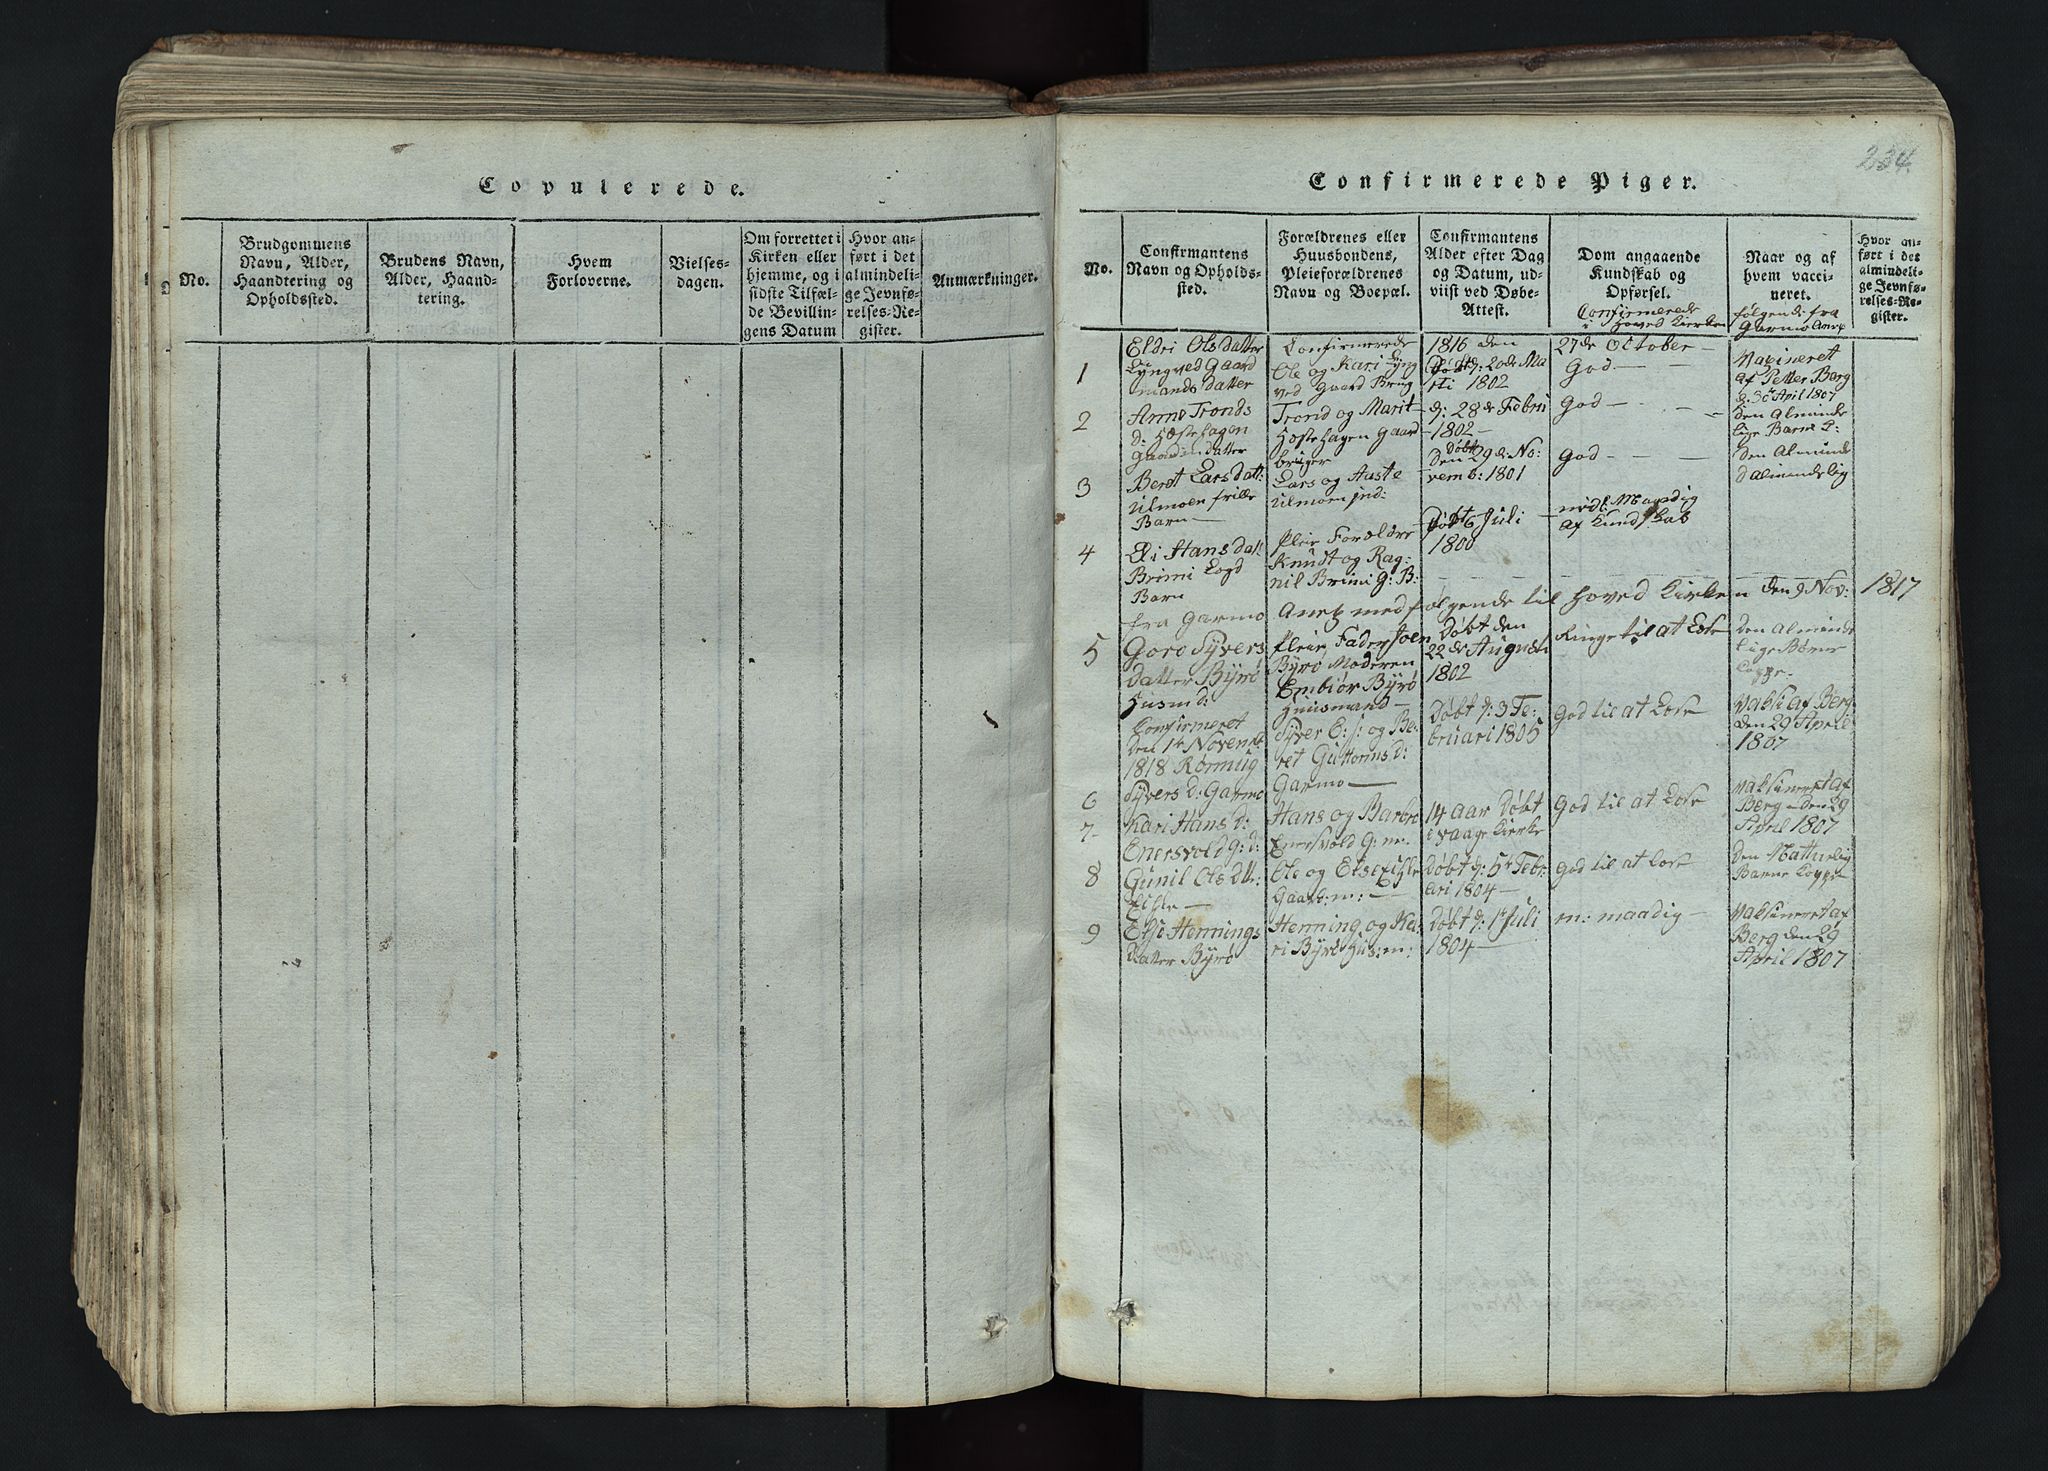 Copulerede.
No.
Brudgommens
Navn, Alder,
Haandtering og
Opholdssted.
Brudens Navn,
Alder, Haand-
tering.
Hvem
Forloverne.
Vielses-
dagen.
Om forrettet i
Kirken eller
hjemme, og i
sidste Tilfæl-
de Bevillin-
gens Datum
Hvor an-
ført i det
almindeli-
ge Jevnfø-
relses-Re-
gister.
Anmærkninger.
234.
Confirmerede Piger.
No.
Confirmantens
Navn og Opholds-
sted.
Forældrenes eller
Huusbondens,
Pleieforældrenes
Navn og Boepæl.
Confirmantens
Alder efter Dag
og Datum, ud-
viist ved Døbe-
Attest.
Dom angaaende
Kundskab og
Opførsel.
Confirmerede
i Hoved Kierken
Naar og af
hvem vacci-
neret.
følgende fra
Garmo
Hvor an-
ført i det
almindeli-
ge Jevnfø-
relses-Re-
gister.
1
Eldri Olsdatter
Lyngved Gaard
mands datter
Confirmerede
Ole og Kari Lyng
ved Gaard Brug
1816 den
Døbt d: 20de Ma
rti 1802
27de October
God
Vaxineret
af Petter Berg
d: 30 April 1807
2
Anne Tronds
d: Hæstehagen
Gaardm datter
Trond og Marit
Hæstehagen Gaard
bruger
d: 28de Febri
1802
God
den Alminde
lige Barne
3
Beret Larsdatt:
Ulmoen frille
Barn
Lars og Aaste
Ulmoen ind:
Døbt
den 29de No:
vemb: 1801
God
den Alminde
dalmindelig
4
Eli Hansdatt
Brimi Logd
Barn
Pleie Forældre
Knud og Rag:
nil Brimi G: B:
Døbt 6 Juli
1800
midl: Maadig
af Kundskab
fra Garmo Anex med følgende til hoved Kirken den 9 Nov: 1817
5
Goro Syvers
datter Byrø
Husmd:
Pleie Fader Joen
Byrø Moderen
Embiør Byrø
Huusmand
Døbt den
22de Augusti
1802
Ringe til at Læse
den Alminde
lige Børne
Copper
Confirmeret
den 1te Novemb
1818 Rønnug
6
Syvers d: Garmo
Syver E: s: og Be:
ret Guttorms d:
Garmo
Døbt d: 3 Fe:
bruari 1805
God til at Læse
Vaksi af Berg
den 29 April
1807
7
Kari Hans d:
Enersvold G: d:
Hans og Barbro
Enersvold G: m:
14 aar Døbt
i vaage Kierke
God til at Læse
Vaksineret af
Berg den 29
April 1807
8
Gunil Ols Dtt:
Ole og Else
Gaard: m:
Døbt d: 5te Febr
ari 1804
God til at Læse
den Natturlig
Barne Copper
9
Else Hennings
datter Byrø
Henning og Ka
ri Byrø Hus: m:
Døbt d: 1te Juli
1804
m: maadig
Vaksineret af
Berg den 29
April 1807